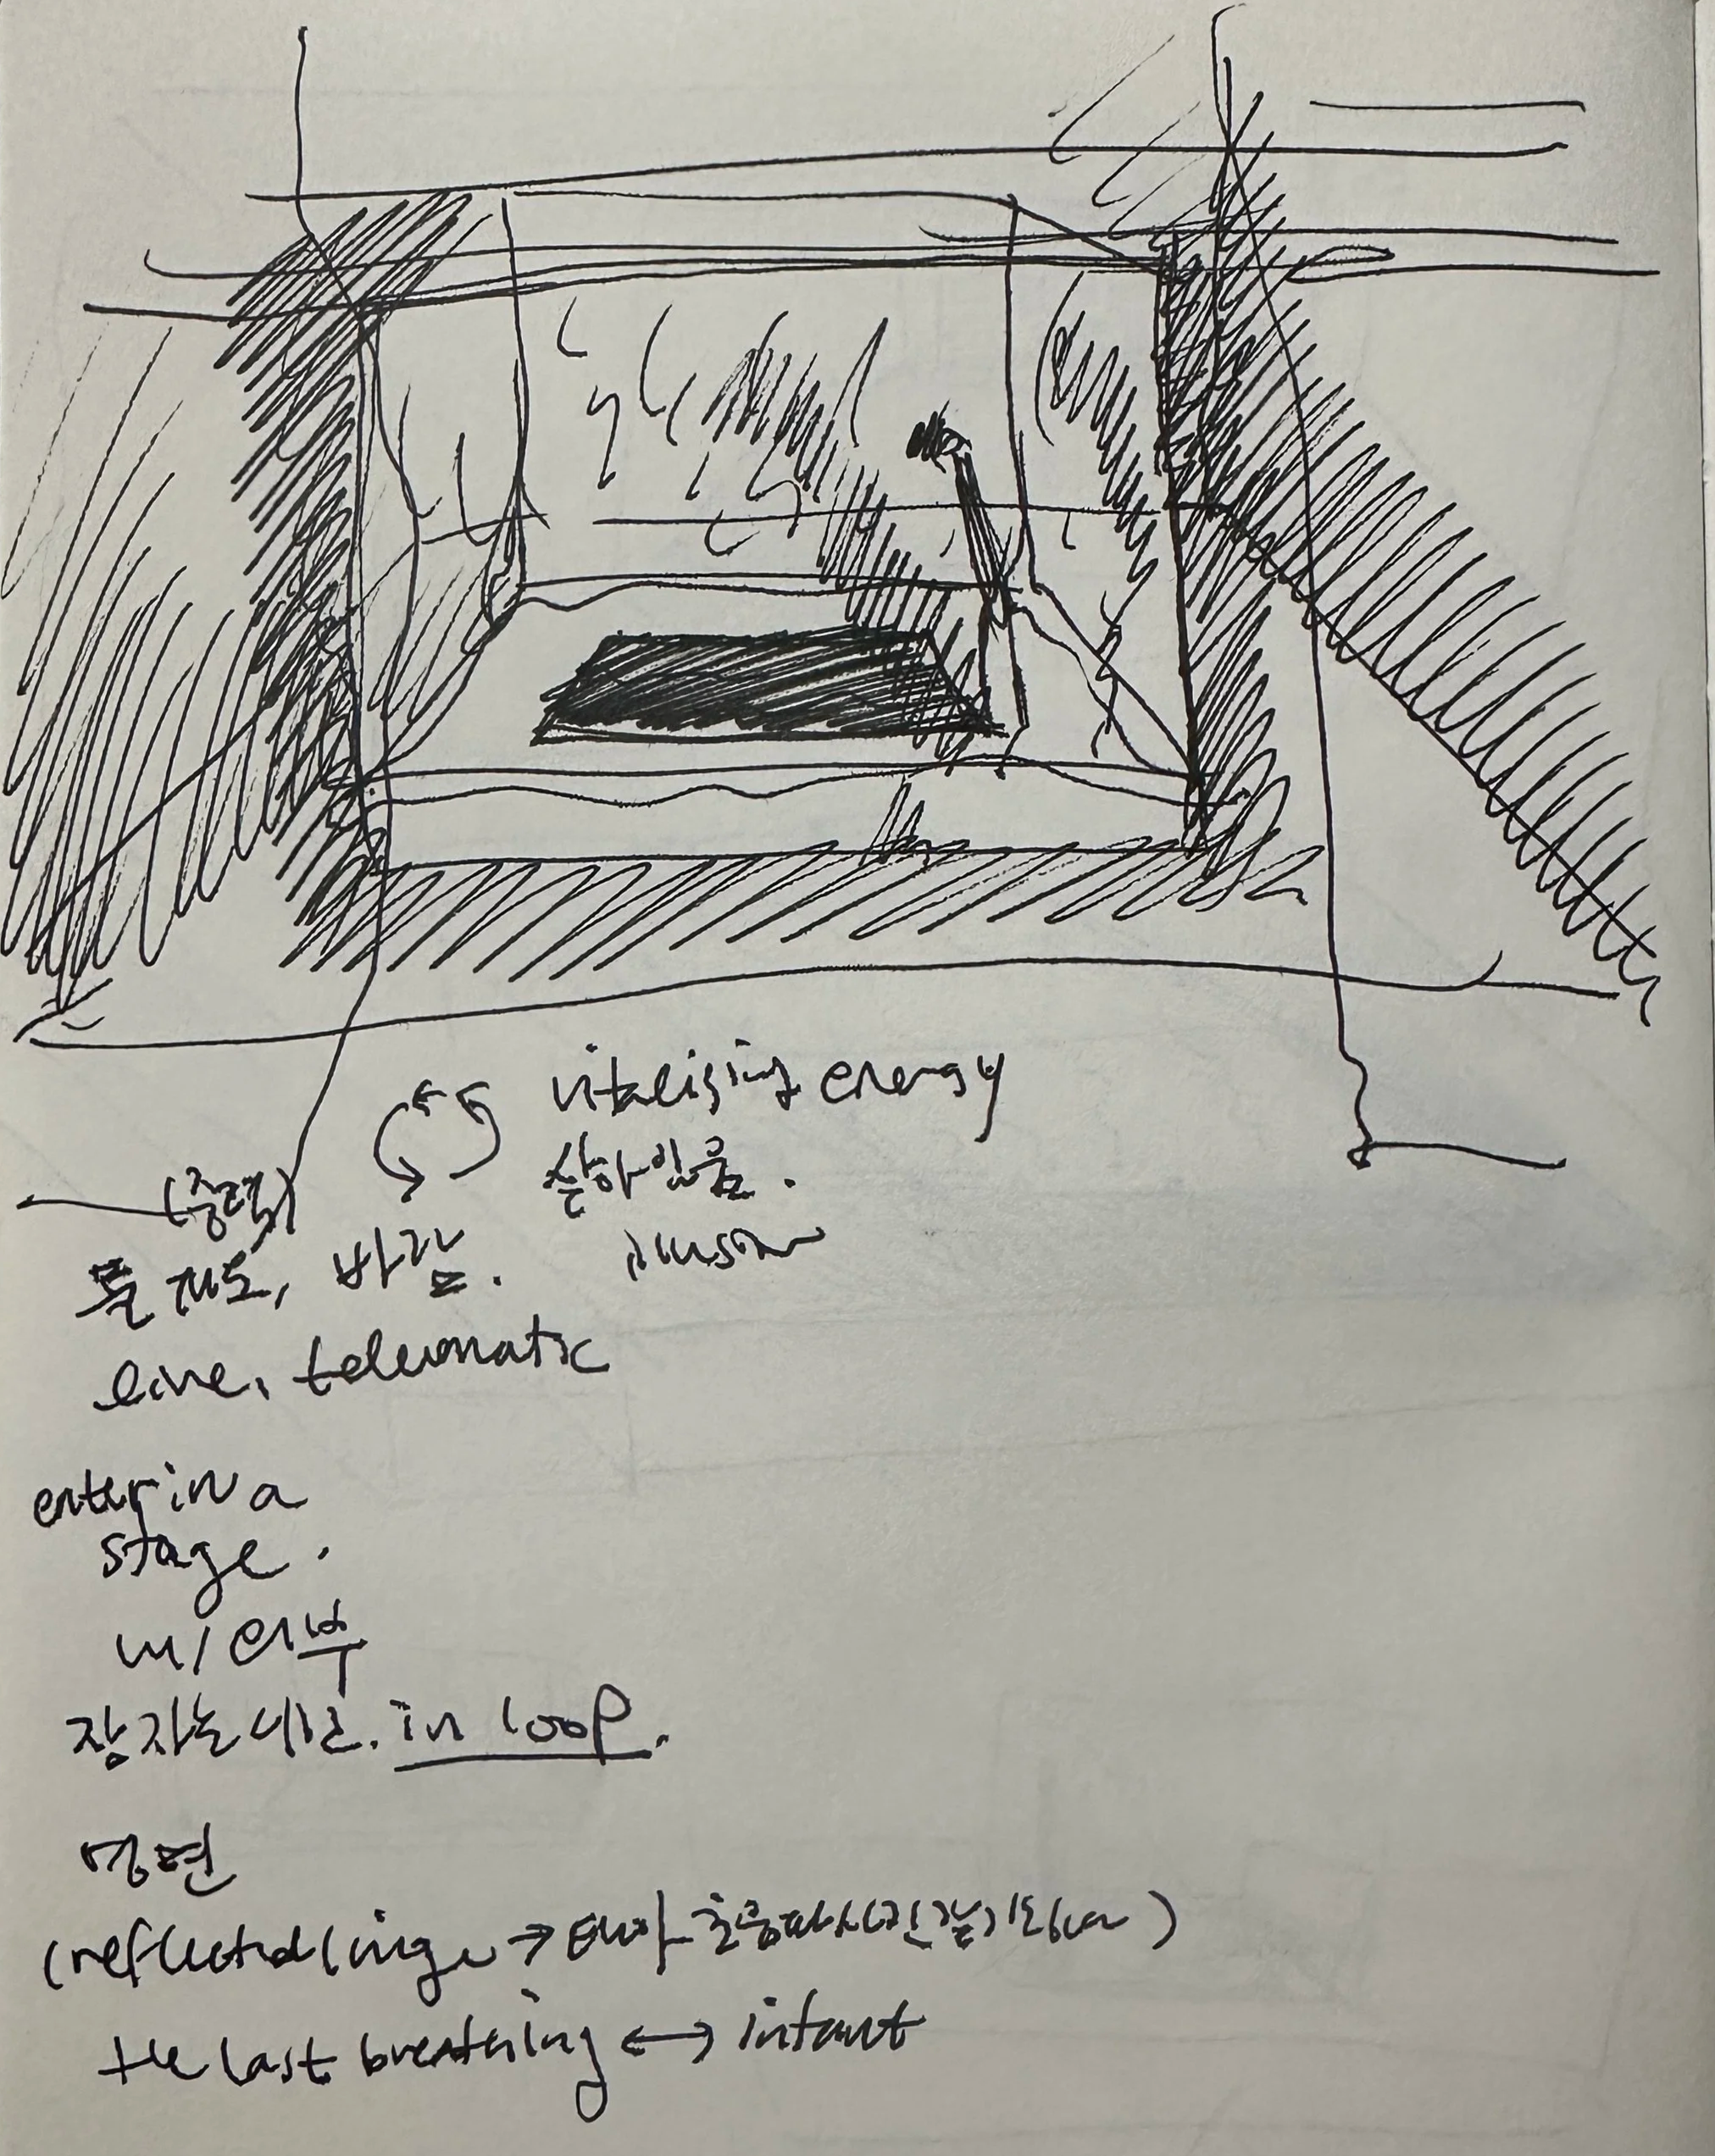 vitalising energy
살아있음.
(중력)
물 파도, 바람.
illusion
live, telematic
enter in a
stage.
w/ 외부
장자는 내로. in loop.
명현
(reflected image → 태아 초음파 사진 같기도)
the last breathing ↔ infant